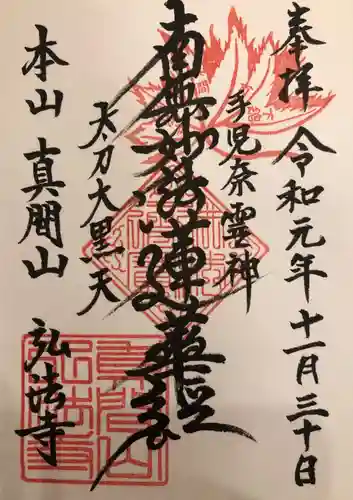 奉拝
令和元年十一月三十日
手児奈霊神
南無妙法蓮華経
太刀大黒天
本山真間山
弘法寺